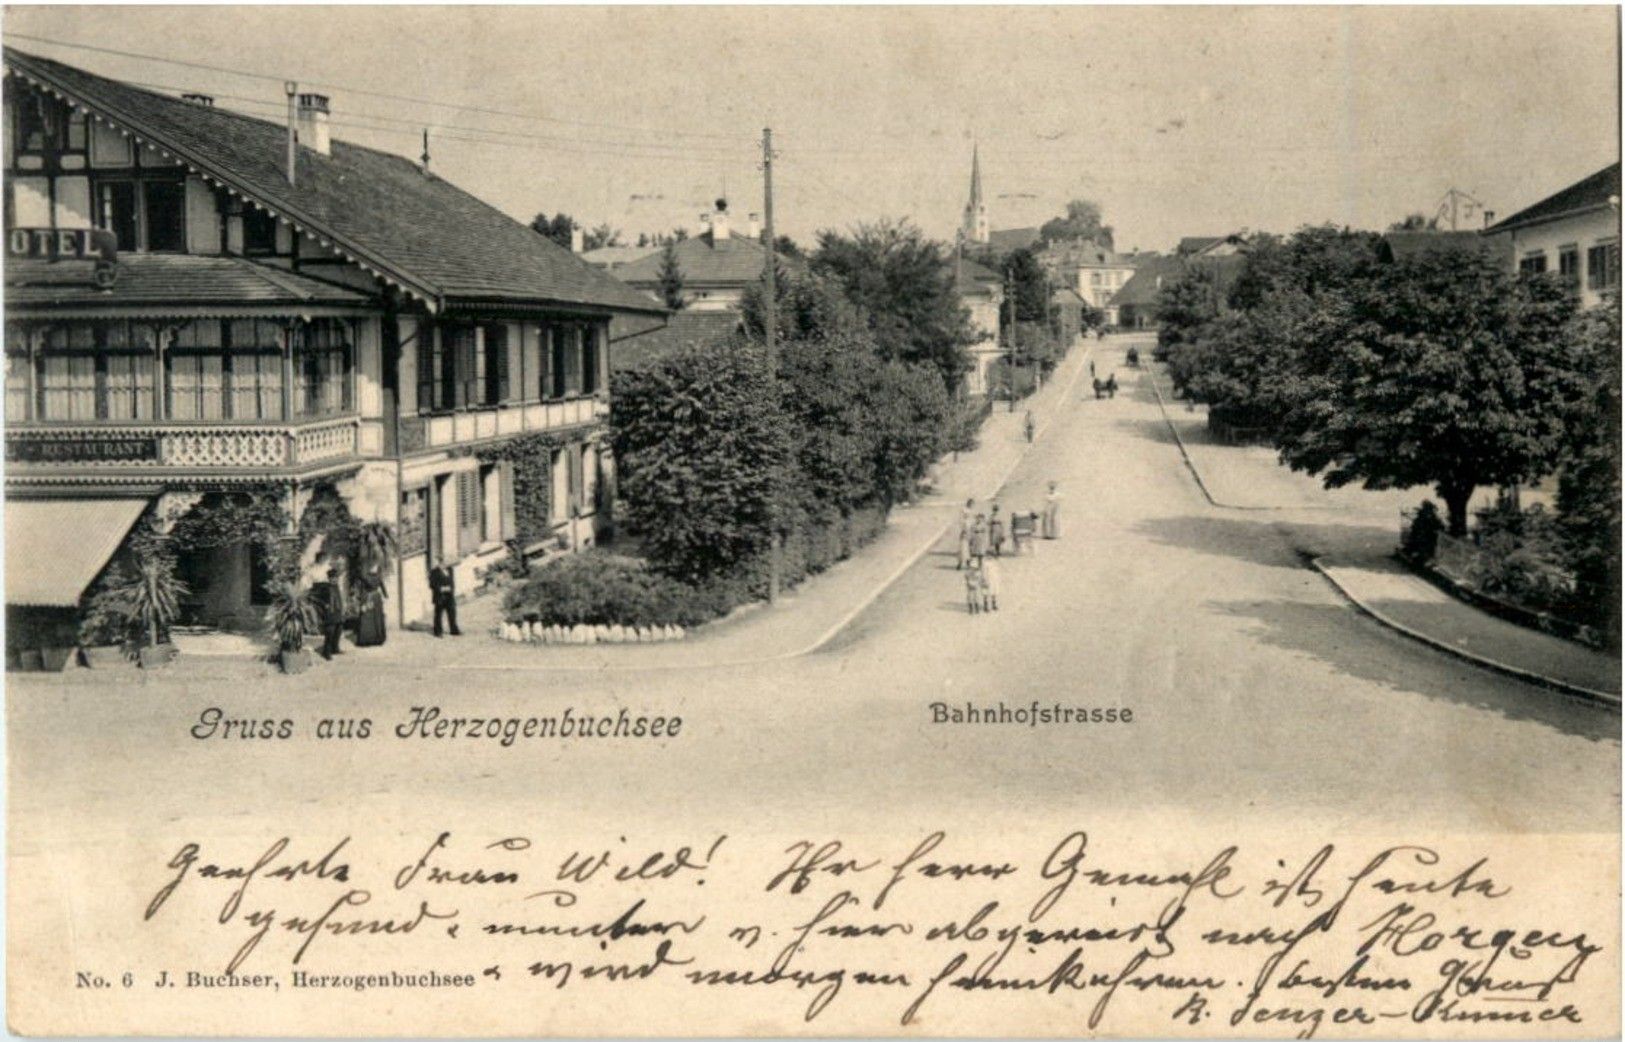 OTEL
RESTAURANT
Gruss aus Herzogenbuchsee
Bahnhofstrasse
Geehrte Frau Wild! Ihr Herr Gemahl ist heute
gesund & munter v. hier abgereist nach Horgen
& wird morgen heimkehren. Besten Gruss
No. 6 J. Buchser, Herzogenbuchsee
R.